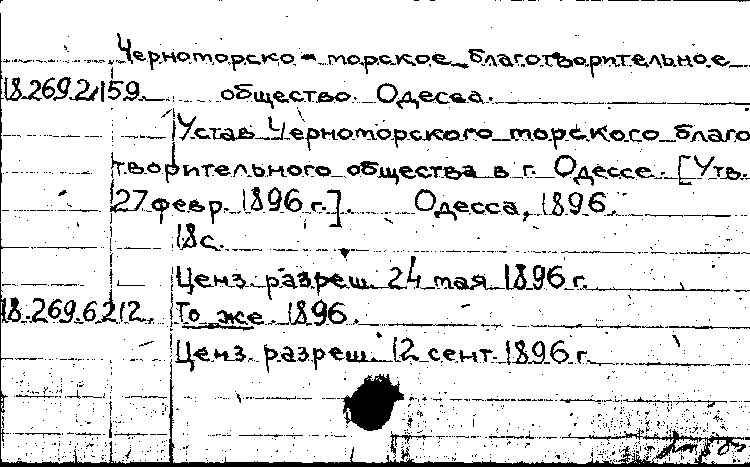 Черноморско-торское благотворительное
18.269.2/159. общество. Одесса.
Устав Черноморского торского благо
творительного общества в г. Одессе. [Утв.
27 февр. 1896 г.]. Одесса, 1896.
18 с.
Ценз. разреш. 24 мая 1896 г.
18.269.6212. То же. 1896.
Ценз. разреш. 12 сент. 1896 г.